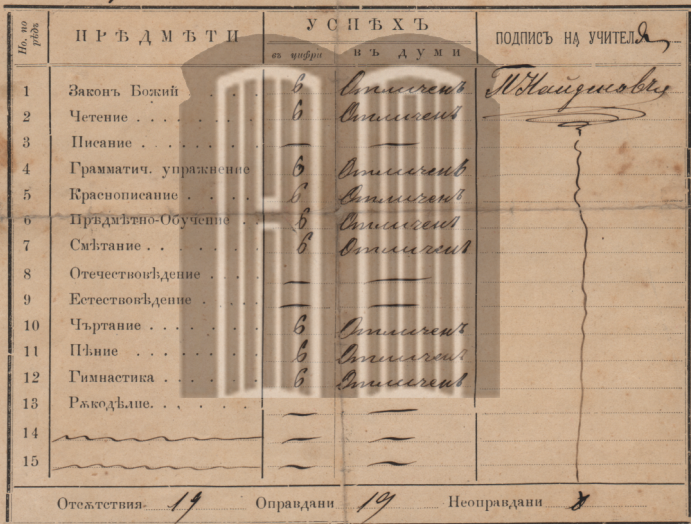 Но. по рѣдъ ПРѢДМѢТИ УСПѢХЪ ПОДПИСЪ НА УЧИТЕЛЯ
въ цифра въ думи
1 Законъ Божий . . . . 6 Отличенъ
2 Четение . . . . . . . 6 Отличенъ
3 Писание . . . . . . — —
4 Грамматич. упражнение 6 Отличенъ
5 Краснописание . . . . 6 Отличенъ
6 Прѣдмѣтно-Обучение . . 6 Отличенъ
7 Смѣтание . . . . . . 6 Отличенъ
8 Отечествовѣдение . . . — —
9 Естествовѣдение . . . — —
10 Чъртание . . . . . . 6 Отличенъ
11 Пѣние . . . . . . . 6 Отличенъ
12 Гимнастика . . . . . 6 Отличенъ
13 Рѫкодѣлие. . . . . . — —
14 — —
15 — —
Отсѫтствия 19 Оправдани 19 Неоправдани